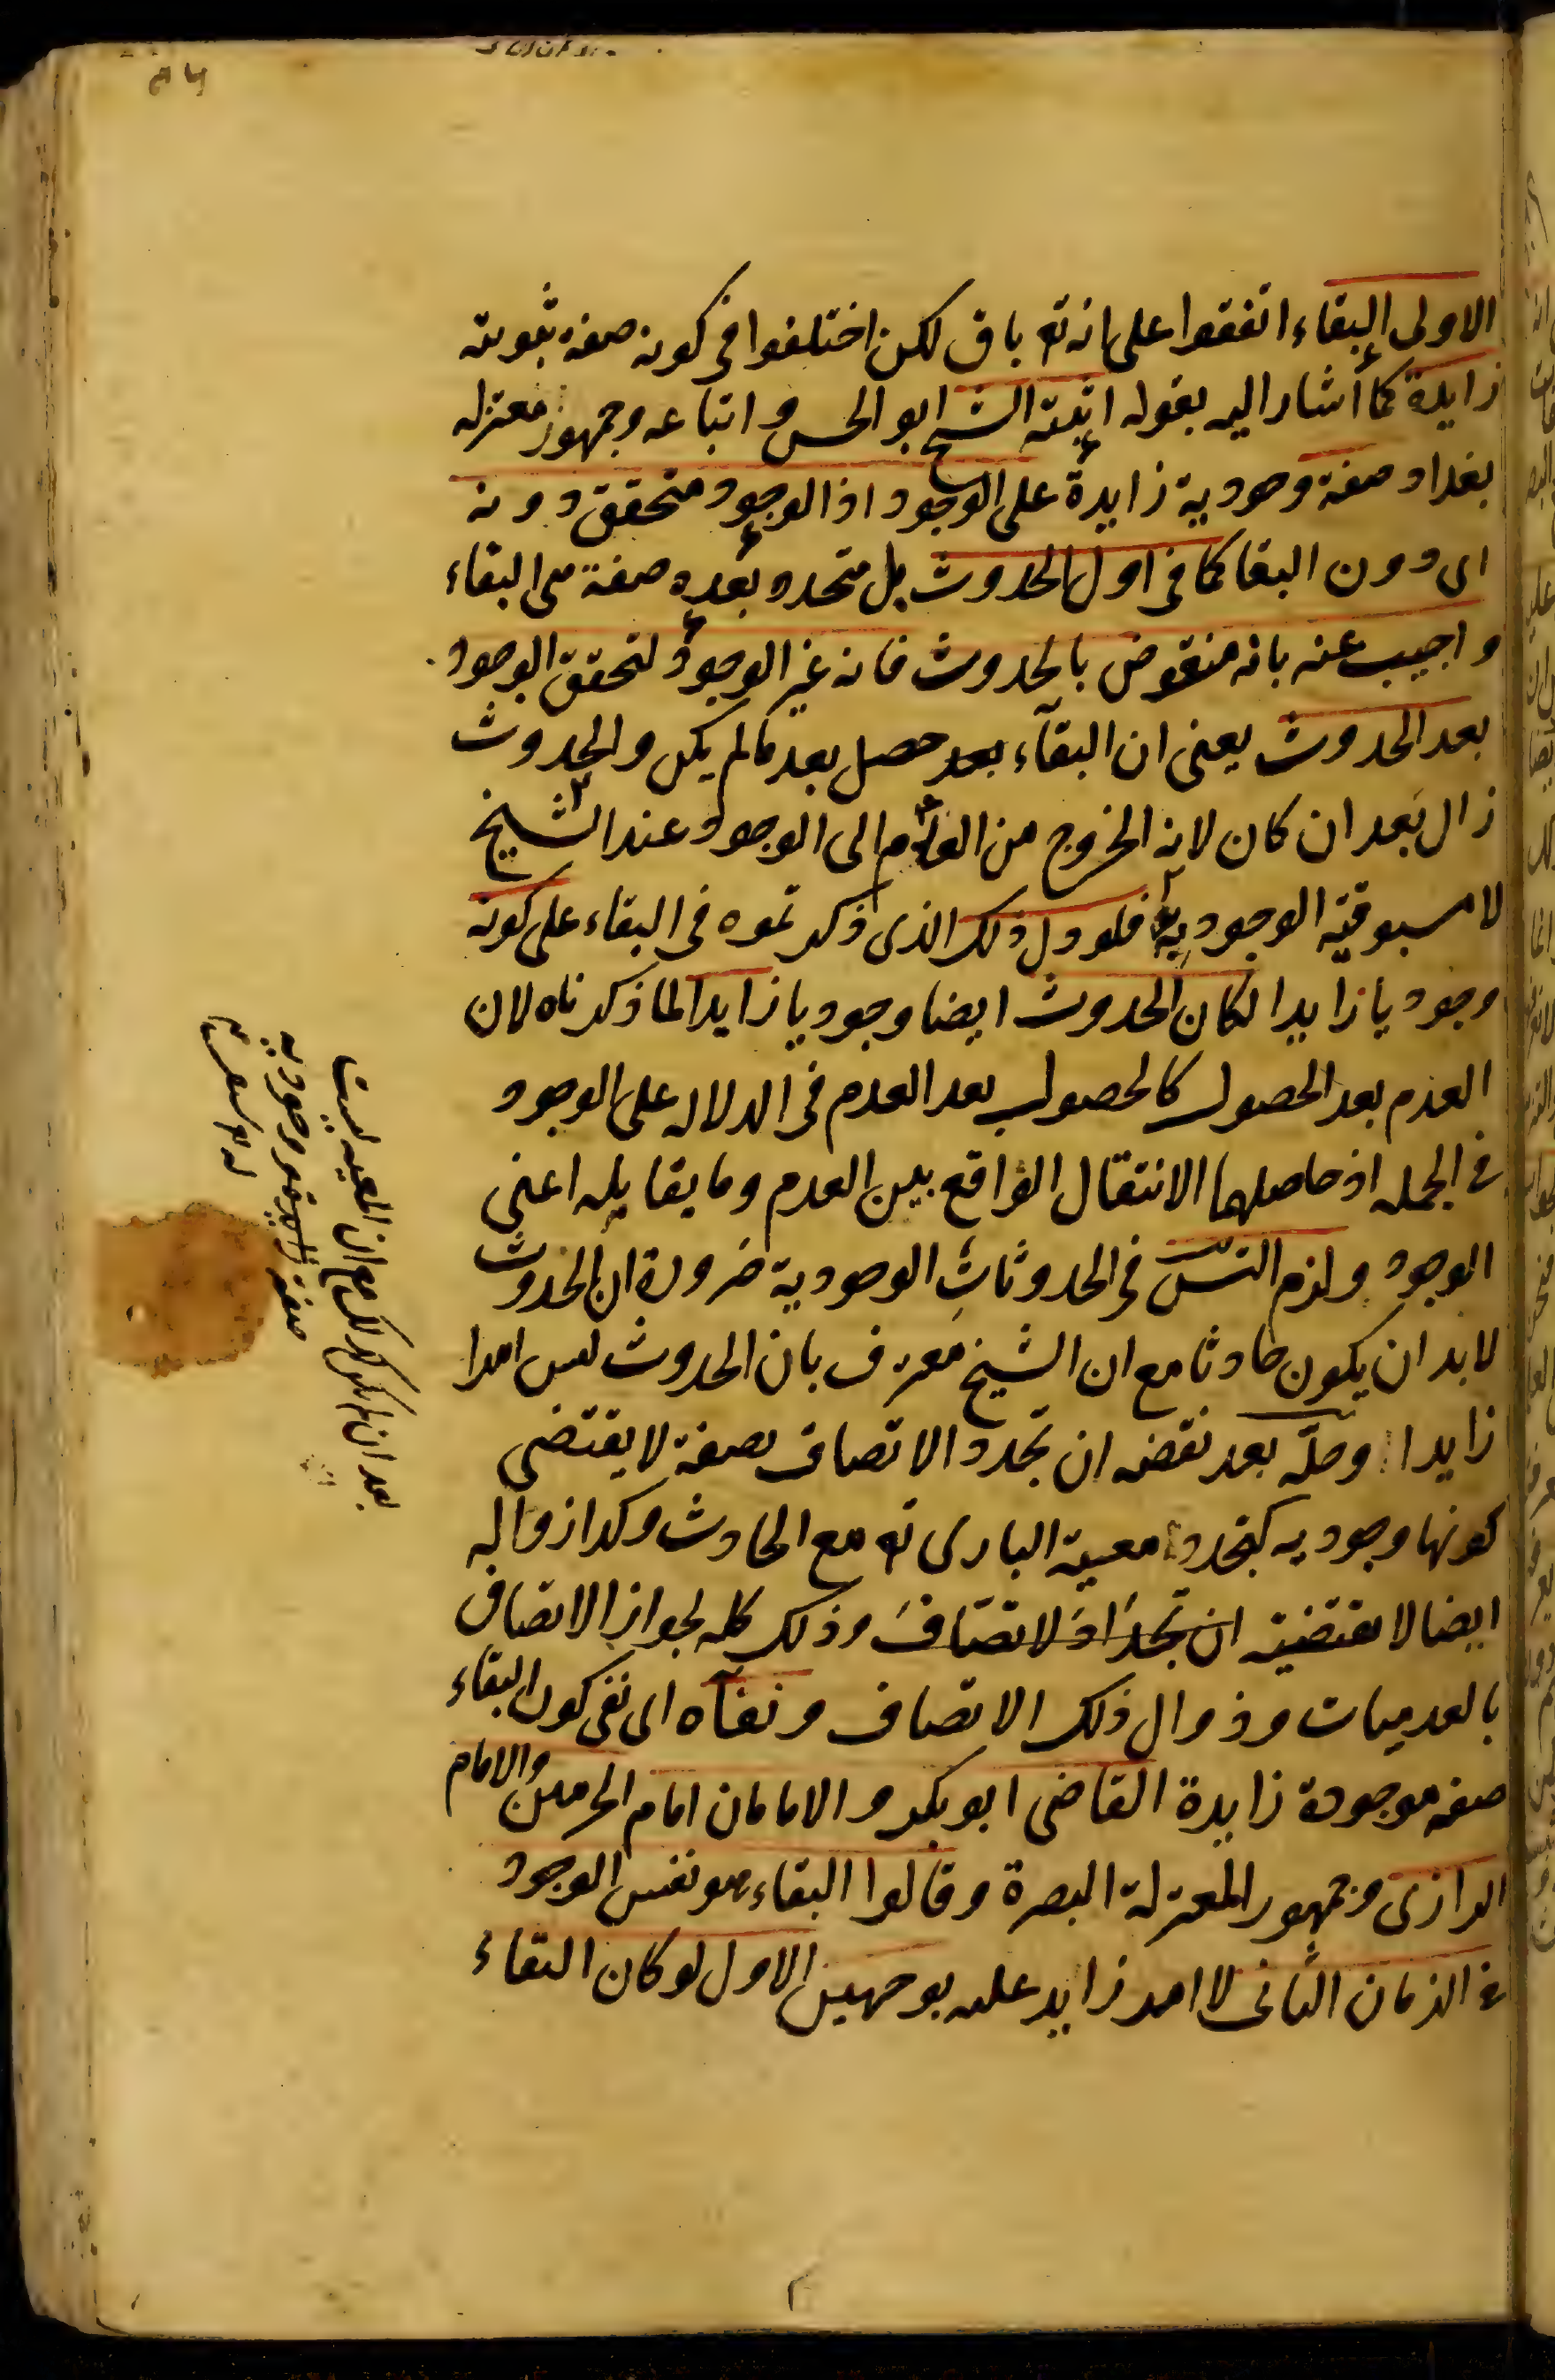 الاولى البقاء اتفقوا على انه تع باق لكن اختلفوا فى كونه صفة ثبوتية
زايدة كما اشار اليه بقوله اثبته الشيخ ابو الحسن واتباعه وجمهور معتزله
بغداد صفة وجودية زايدة على الوجود اذ الوجود متحقق دونه
اى دون البقا كما فى اول الحدوث بل متجدد بعده صفة هى البقاء
واجيب عنه بانه منقوض بالحدوث فانه غير الوجود لتحقق الوجود
بعد الحدوث يعنى ان البقآء بعد حصل بعد ما لم يكن والحدوث
زال بعد ان كان لانه الخروج من العدم الى الوجود عند الشيخ
لا مسبوقية الوجود به فلو دل ذلك الذى ذكرتموه فى البقاء على كونه
وجوديا زايدا لكان الحدوث ايضا وجوديا زايدا لما ذكرناه لان
العدم بعد الحصول كالحصول بعد العدم فى الدلاله على الوجود
فى الجمله اذ حاصلهما الانتقال الواقع بين العدم وما يقابله اعنى
الوجود ولزم التس فى الحدوثات الوجودية ضرورة ان الحدوث
لابد ان يكون حادثا مع ان الشيخ معترف بان الحدوث ليس امرا
زايدا وحله بعد نقضه ان تجدد الاتصاف بصفة لا يقتضى
كونها وجوديه كتجدد معية البارى تع مع الحادث وكذا زواله
ايضا لا يقتضيه ان تجدد الاتصاف وذلك كله لجواز الاتصاف
بالعدميات وزوال ذلك الاتصاف ونفاه اى نفى كون البقاء
صفه موجودة زايدة القاضى ابو بكر والامامان امام الحرمين والامام
الرازى وجمهور المعتزلة البصرة وقالوا البقاء هو نفس الوجود
فى الزمان الثانى لا امر زايد عليه بوجهين الاول لو كان البقاء
بعد ان لم يكن كذلك مع ان المعيه ليست
صفة وجوديه